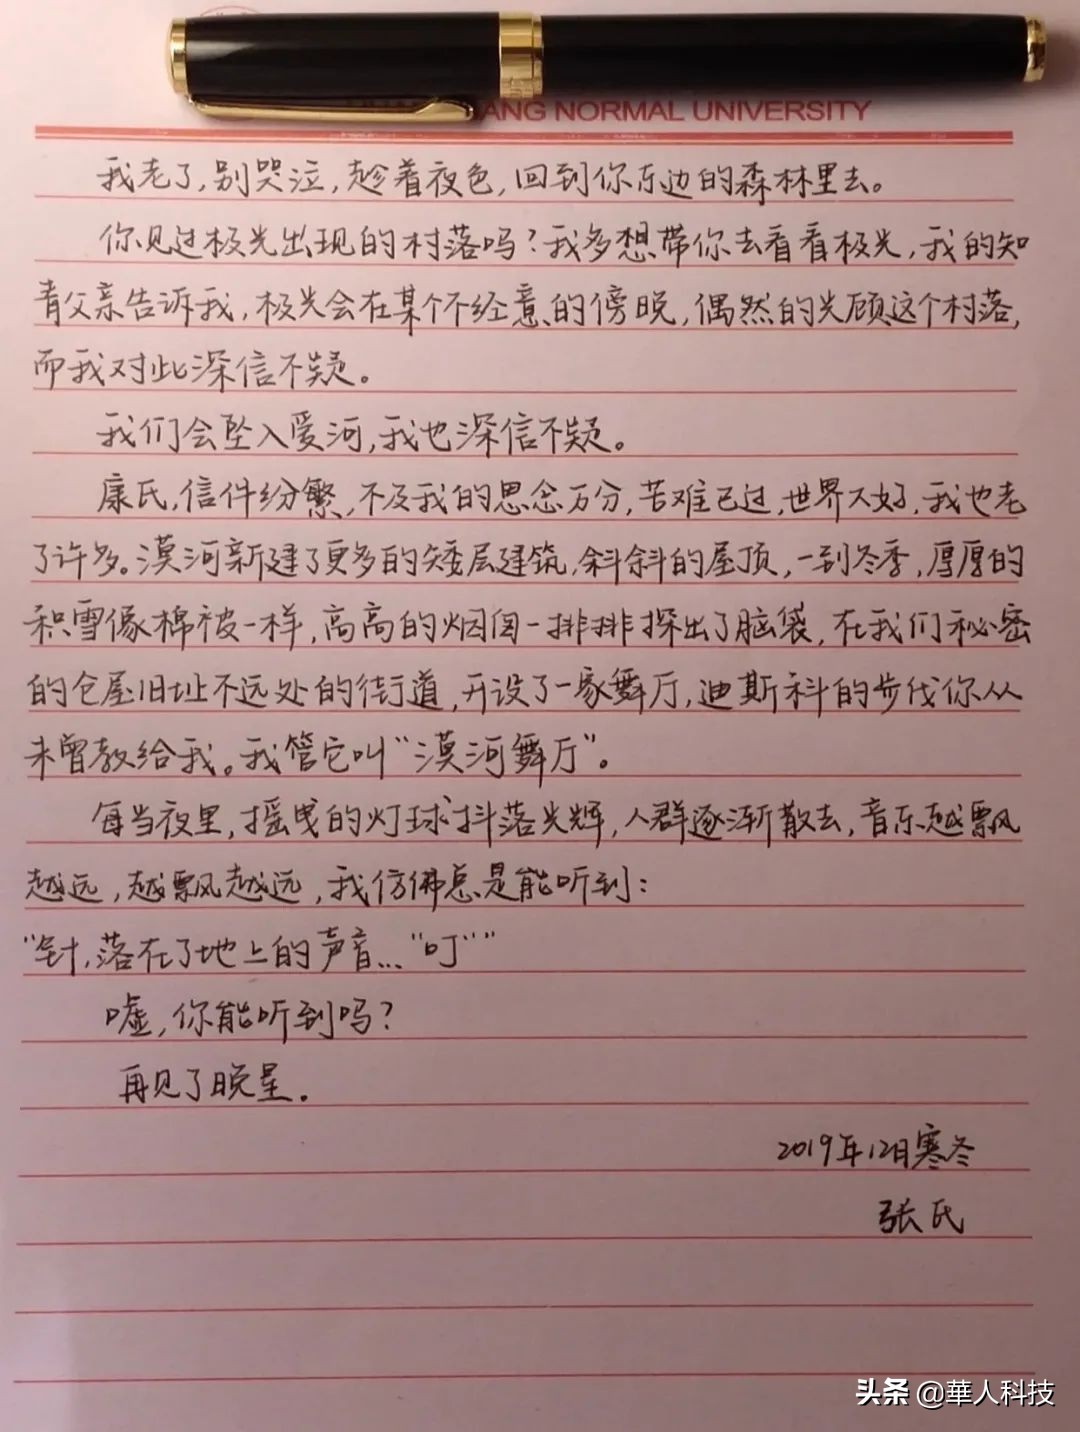 ANG NORMAL UNIVERSITY
我老了,别哭泣,趁着夜色,回到你东边的森林里去。
你见过极光出现的村落吗?我多想带你去看看极光,我的知
青父亲告诉我,极光会在某个不经意的傍晚,偶然的光顾这个村落,
而我对此深信不疑。
我们会坠入爱河,我也深信不疑。
康氏,信件纷繁,不及我的思念万分,苦难已过,世界大好,我也老
了许多。漠河新建了更多的矮层建筑,斜斜的屋顶,一到冬季,厚厚的
积雪像棉被一样,高高的烟囱一排排探出了脑袋,在我们秘密
的仓屋旧址不远处的街道,开设了一家舞厅,迪斯科的步伐你从
未曾教给我。我管它叫“漠河舞厅”。
每当夜里,摇曳的灯球抖落光辉,人群逐渐散去,音乐越飘
越远,越飘越远,我仿佛总是能听到:
“针,落在了地上的声音...“叮””
嘘,你能听到吗?
再见了晚星.
2019年12月寒冬
张氏
头条 @華人科技